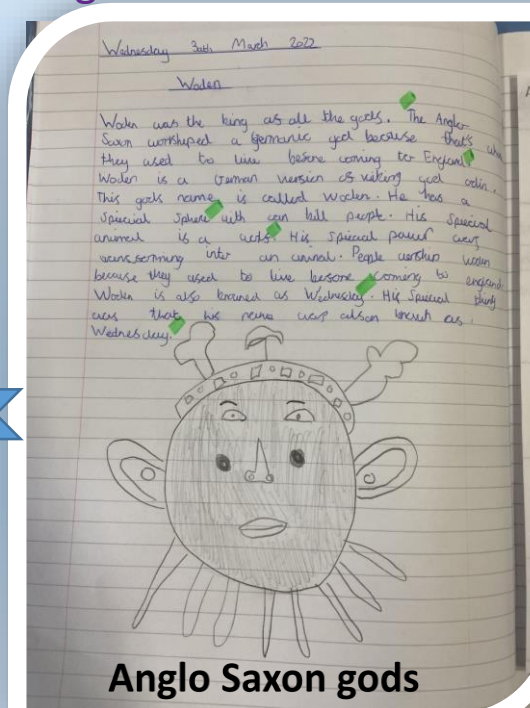 Wednesday 30th March 2022
Woden
Woden was the king as all the gods. The Anglo
Saxon worshiped a Germanic god because that's
they used to live besore coming to England
Woden is a German version as viking god odin.
This gods name is called Woden. He has a
Speicial Sphere with can kill people. His Speicial
animal is a His Speicial power was
transsorming into an animal. People worship woden
because they used to live besore coming to england.
Woden is also known as Wednesday. His Special thing
was that his name was also as
Wednesday.
Anglo Saxon gods